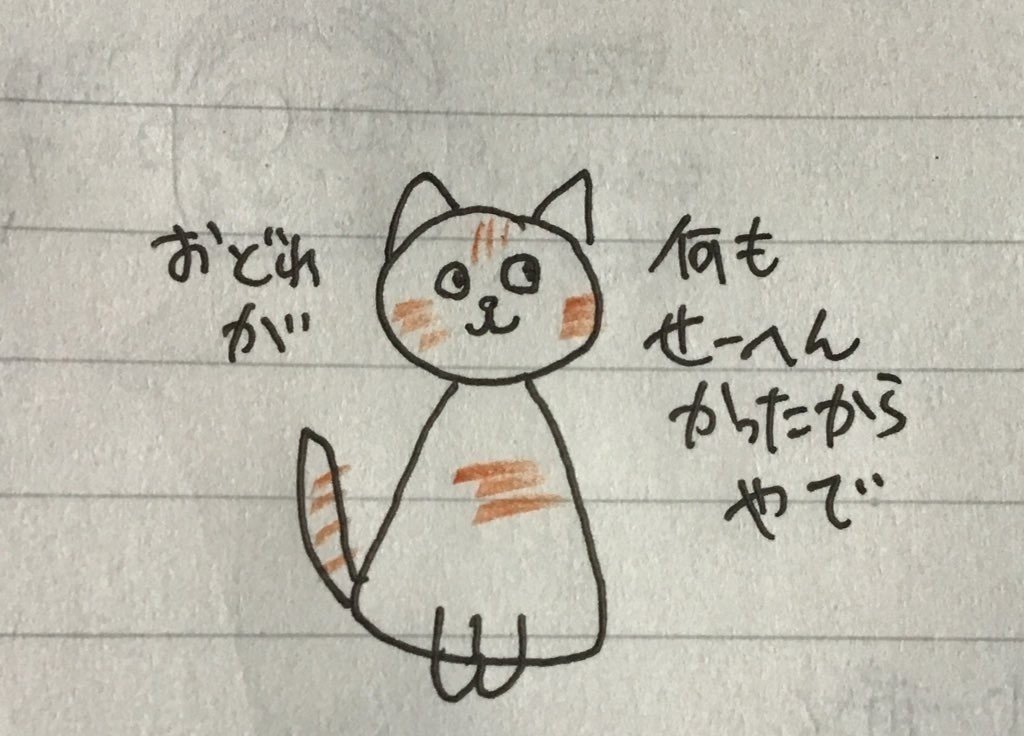 おどれ
が
何も
せーへん
かったから
やで